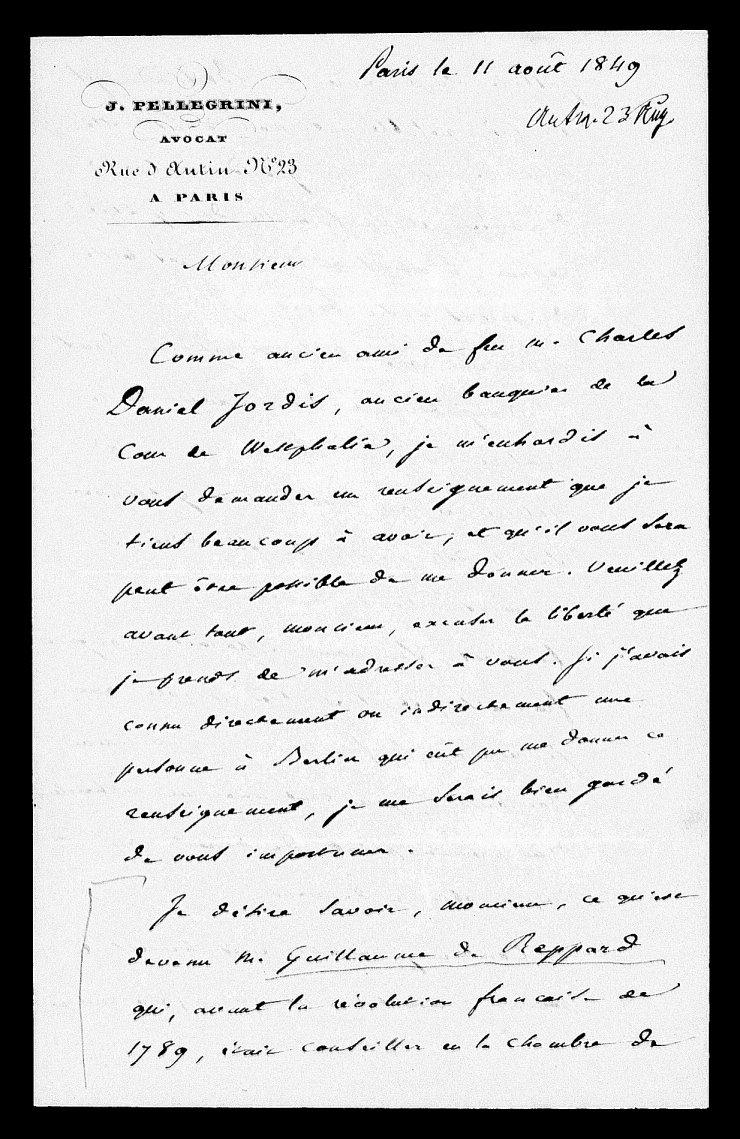 Paris le 11 août 1849
J. PELLEGRINI,
AVOCAT
Rue d'Antin N.º 23
A PARIS
23 Aug.
Monsieur
Comme ancien ami de feu m. Charles
Daniel Jordis, ancien banquier de la
Cour de Westphalie, je m'enhardis à
vous demander un renseignement que je
tiens beaucoup à avoir, et qu'il vous sera
peut être possible de me donner. Veuillez
avant tout, monsieur, excuser la liberté que
je prends de m'adresser à vous. Si j'avais
connu directement ou indirectement une
personne à Berlin qui eût pu me donner ce
renseignement, je me serais bien gardé
de vous importuner.
Je désire savoir, monsieur, ce qu'est
devenu M. Guillaume de Reppard
qui, avant la révolution française de
1789, était conseiller en la chambre de